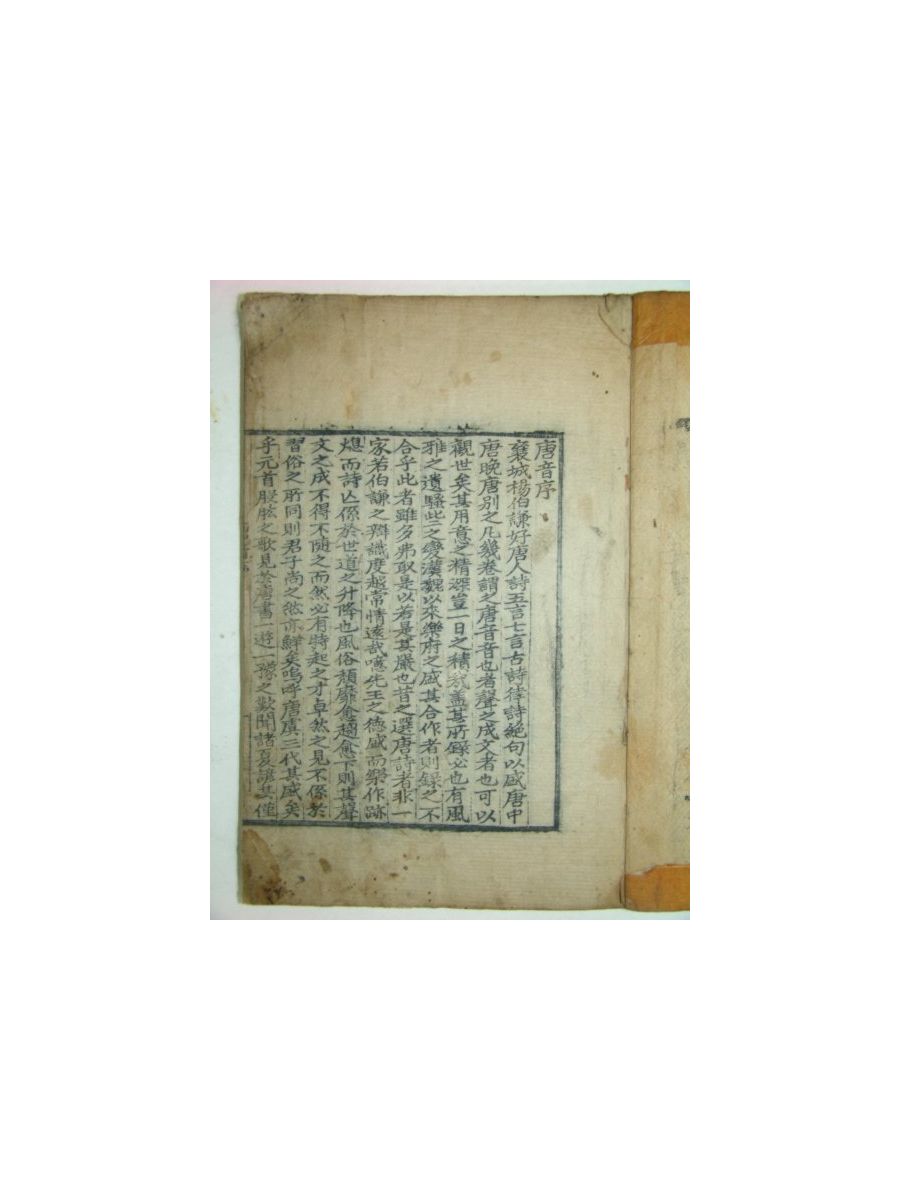 唐音序
襄城楊伯謙好唐人詩五言七言古詩律詩絕句以盛唐中
唐晚唐別之凡幾卷謂之唐音音也者聲之成文者也可以
觀世矣其用意之精深豈一日之積哉盖其所錄必也有風
雅之遺騷些之變漢魏以來樂府之盛其合作者則錄之不
合乎此者雖多弗取是以若是其嚴也昔之選唐詩者非一
家若伯謙之辯識度越常情遠哉噫先王之德盛而樂作跡
熄而詩亾係於世道之升降也風俗頹靡愈趨愈下則其聲
文之成不得不隨之而然必有特起之才卓然之見不係於
習俗之所同則君子尚之然亦鮮矣嗚呼唐虞三代其盛矣
乎元首股肱之歌見於虞書一遊一豫之歎聞諸夏諺其僅